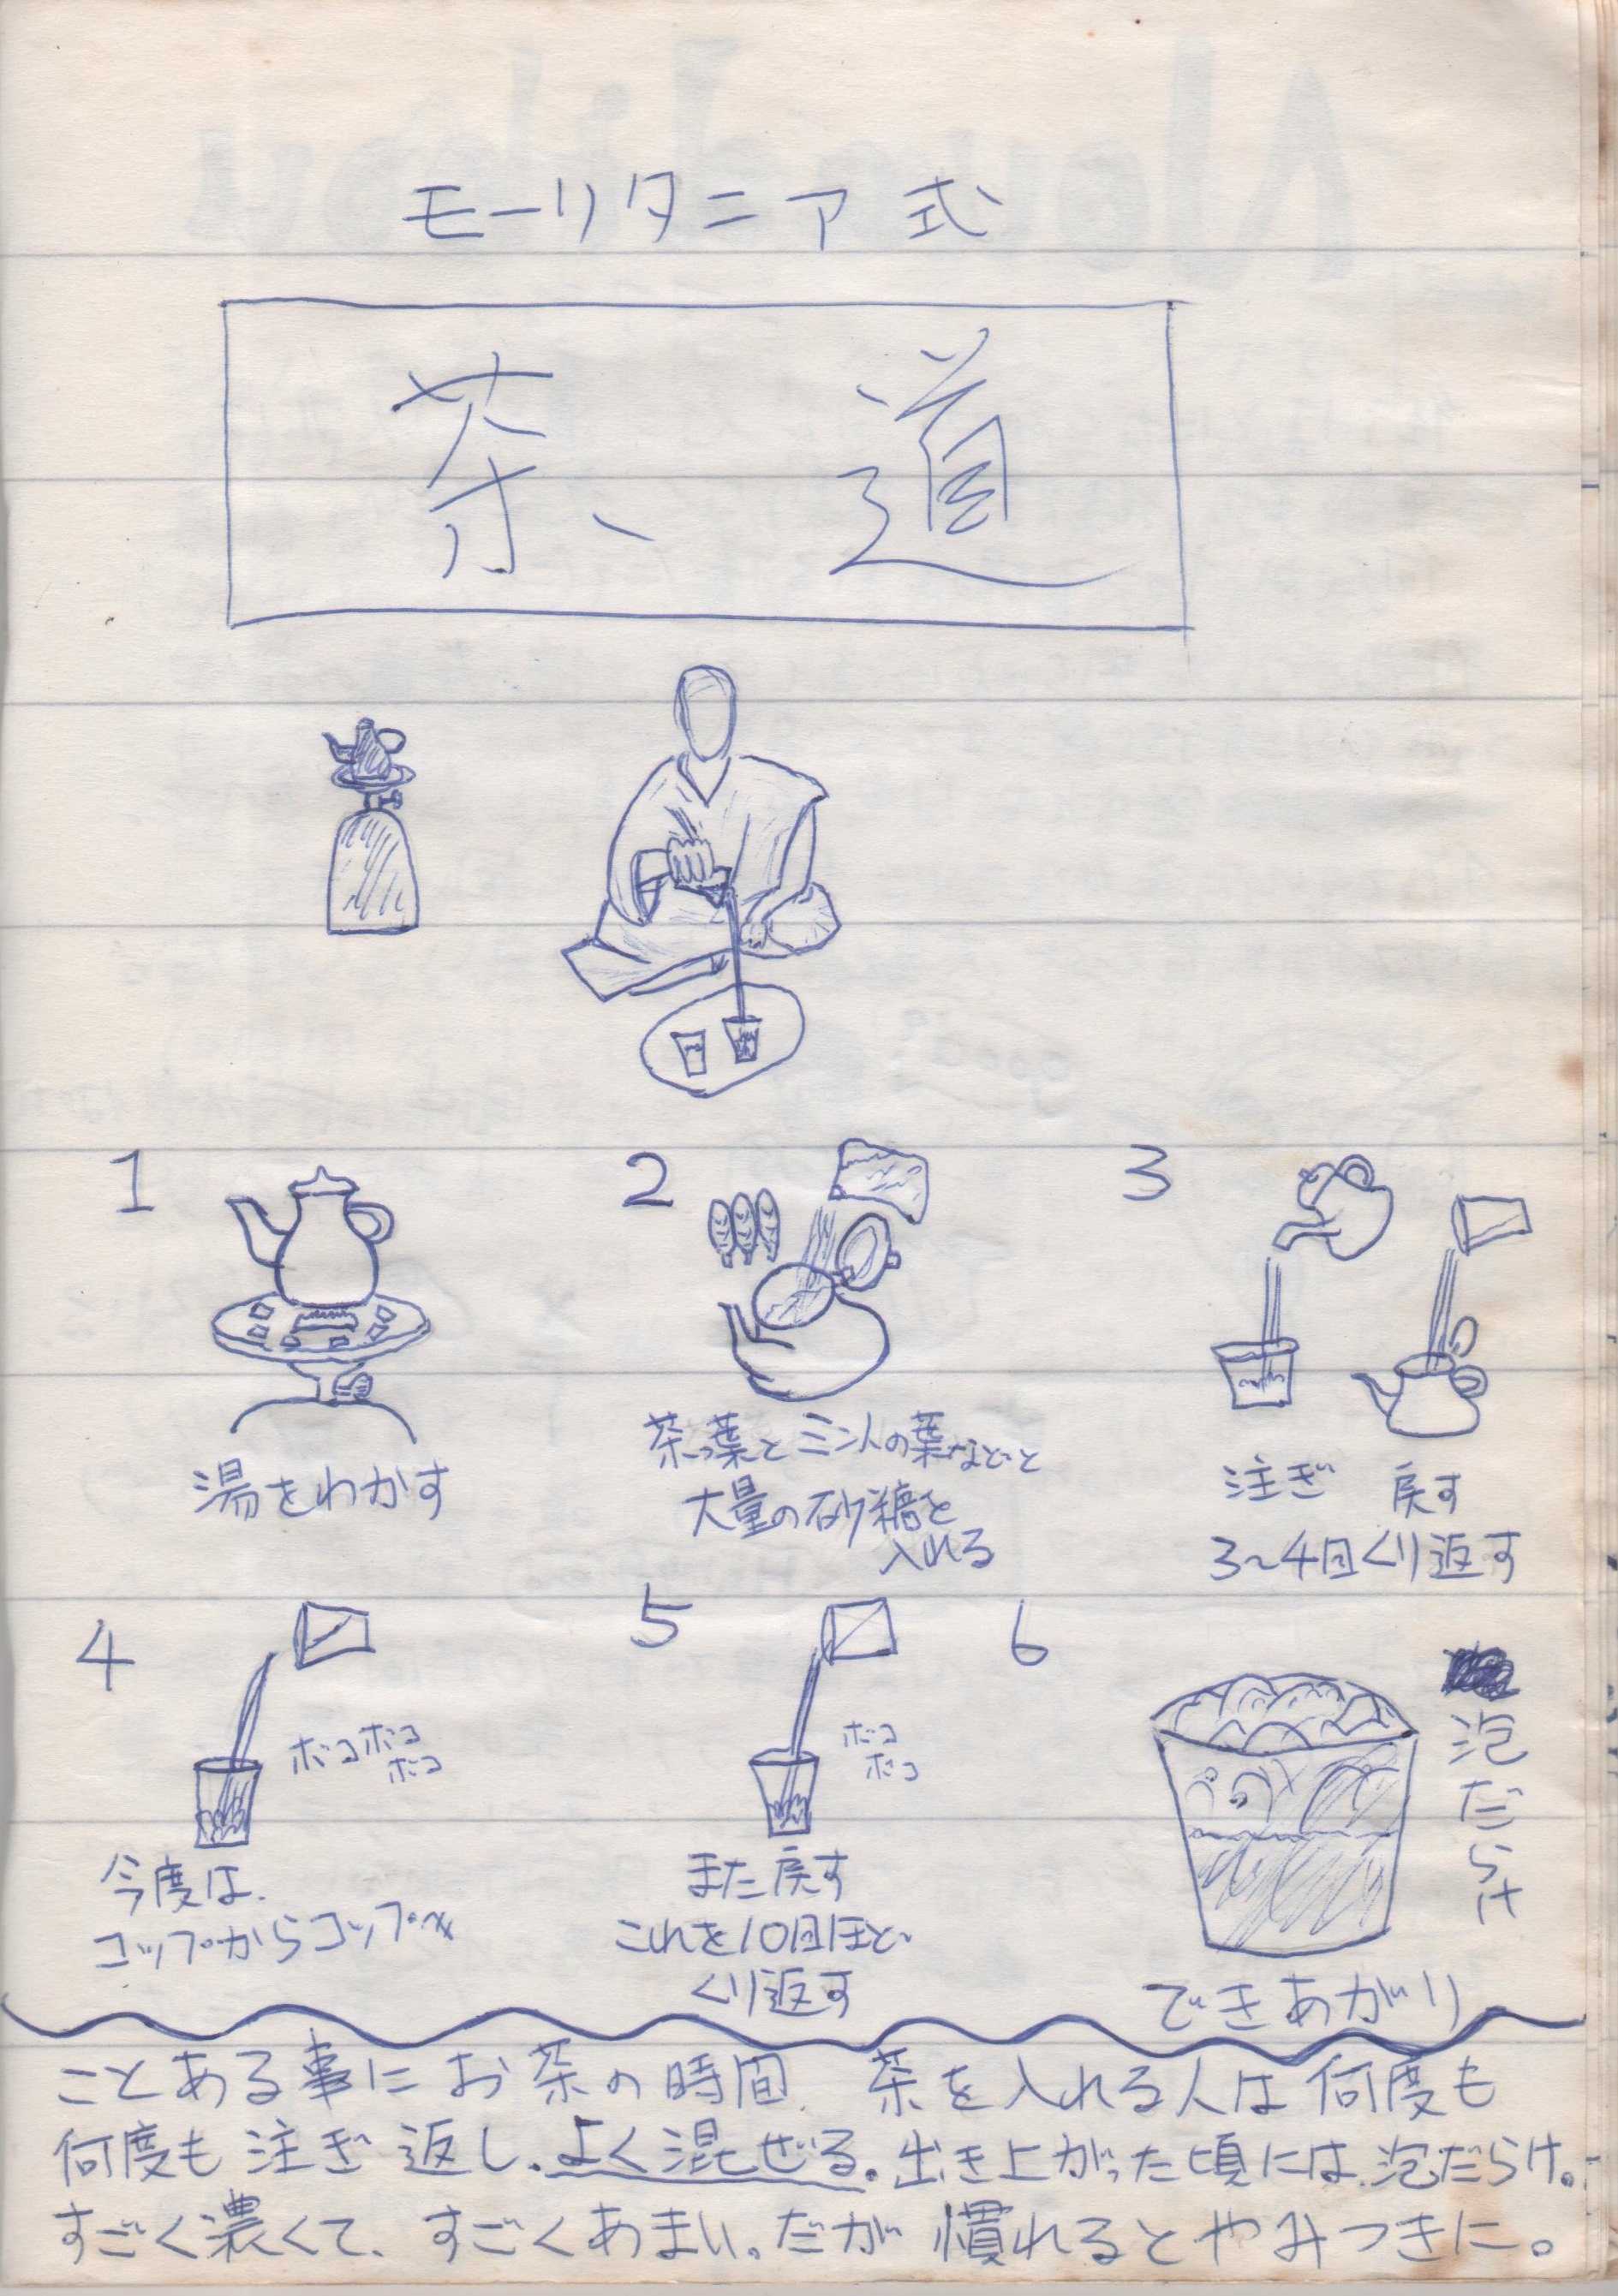 モーリタニア式
茶道
1
湯をわかす
2
茶っ葉とミントの葉などと
大量の砂糖を
入れる
3
注ぎ 戻す
3~4回くり返す
4
ボコボコ
ボコ
今度は、
コップからコップへ
5
ボコ
ボコ
また戻す
これを10回ほど
くり返す
6
泡だらけ
できあがり
ことある事にお茶の時間、茶を入れる人は何度も
何度も注ぎ返し、よく混ぜる。出き上がった頃には、泡だらけ。
すごく濃くて、すごくあまい。だが慣れるとやみつきに。